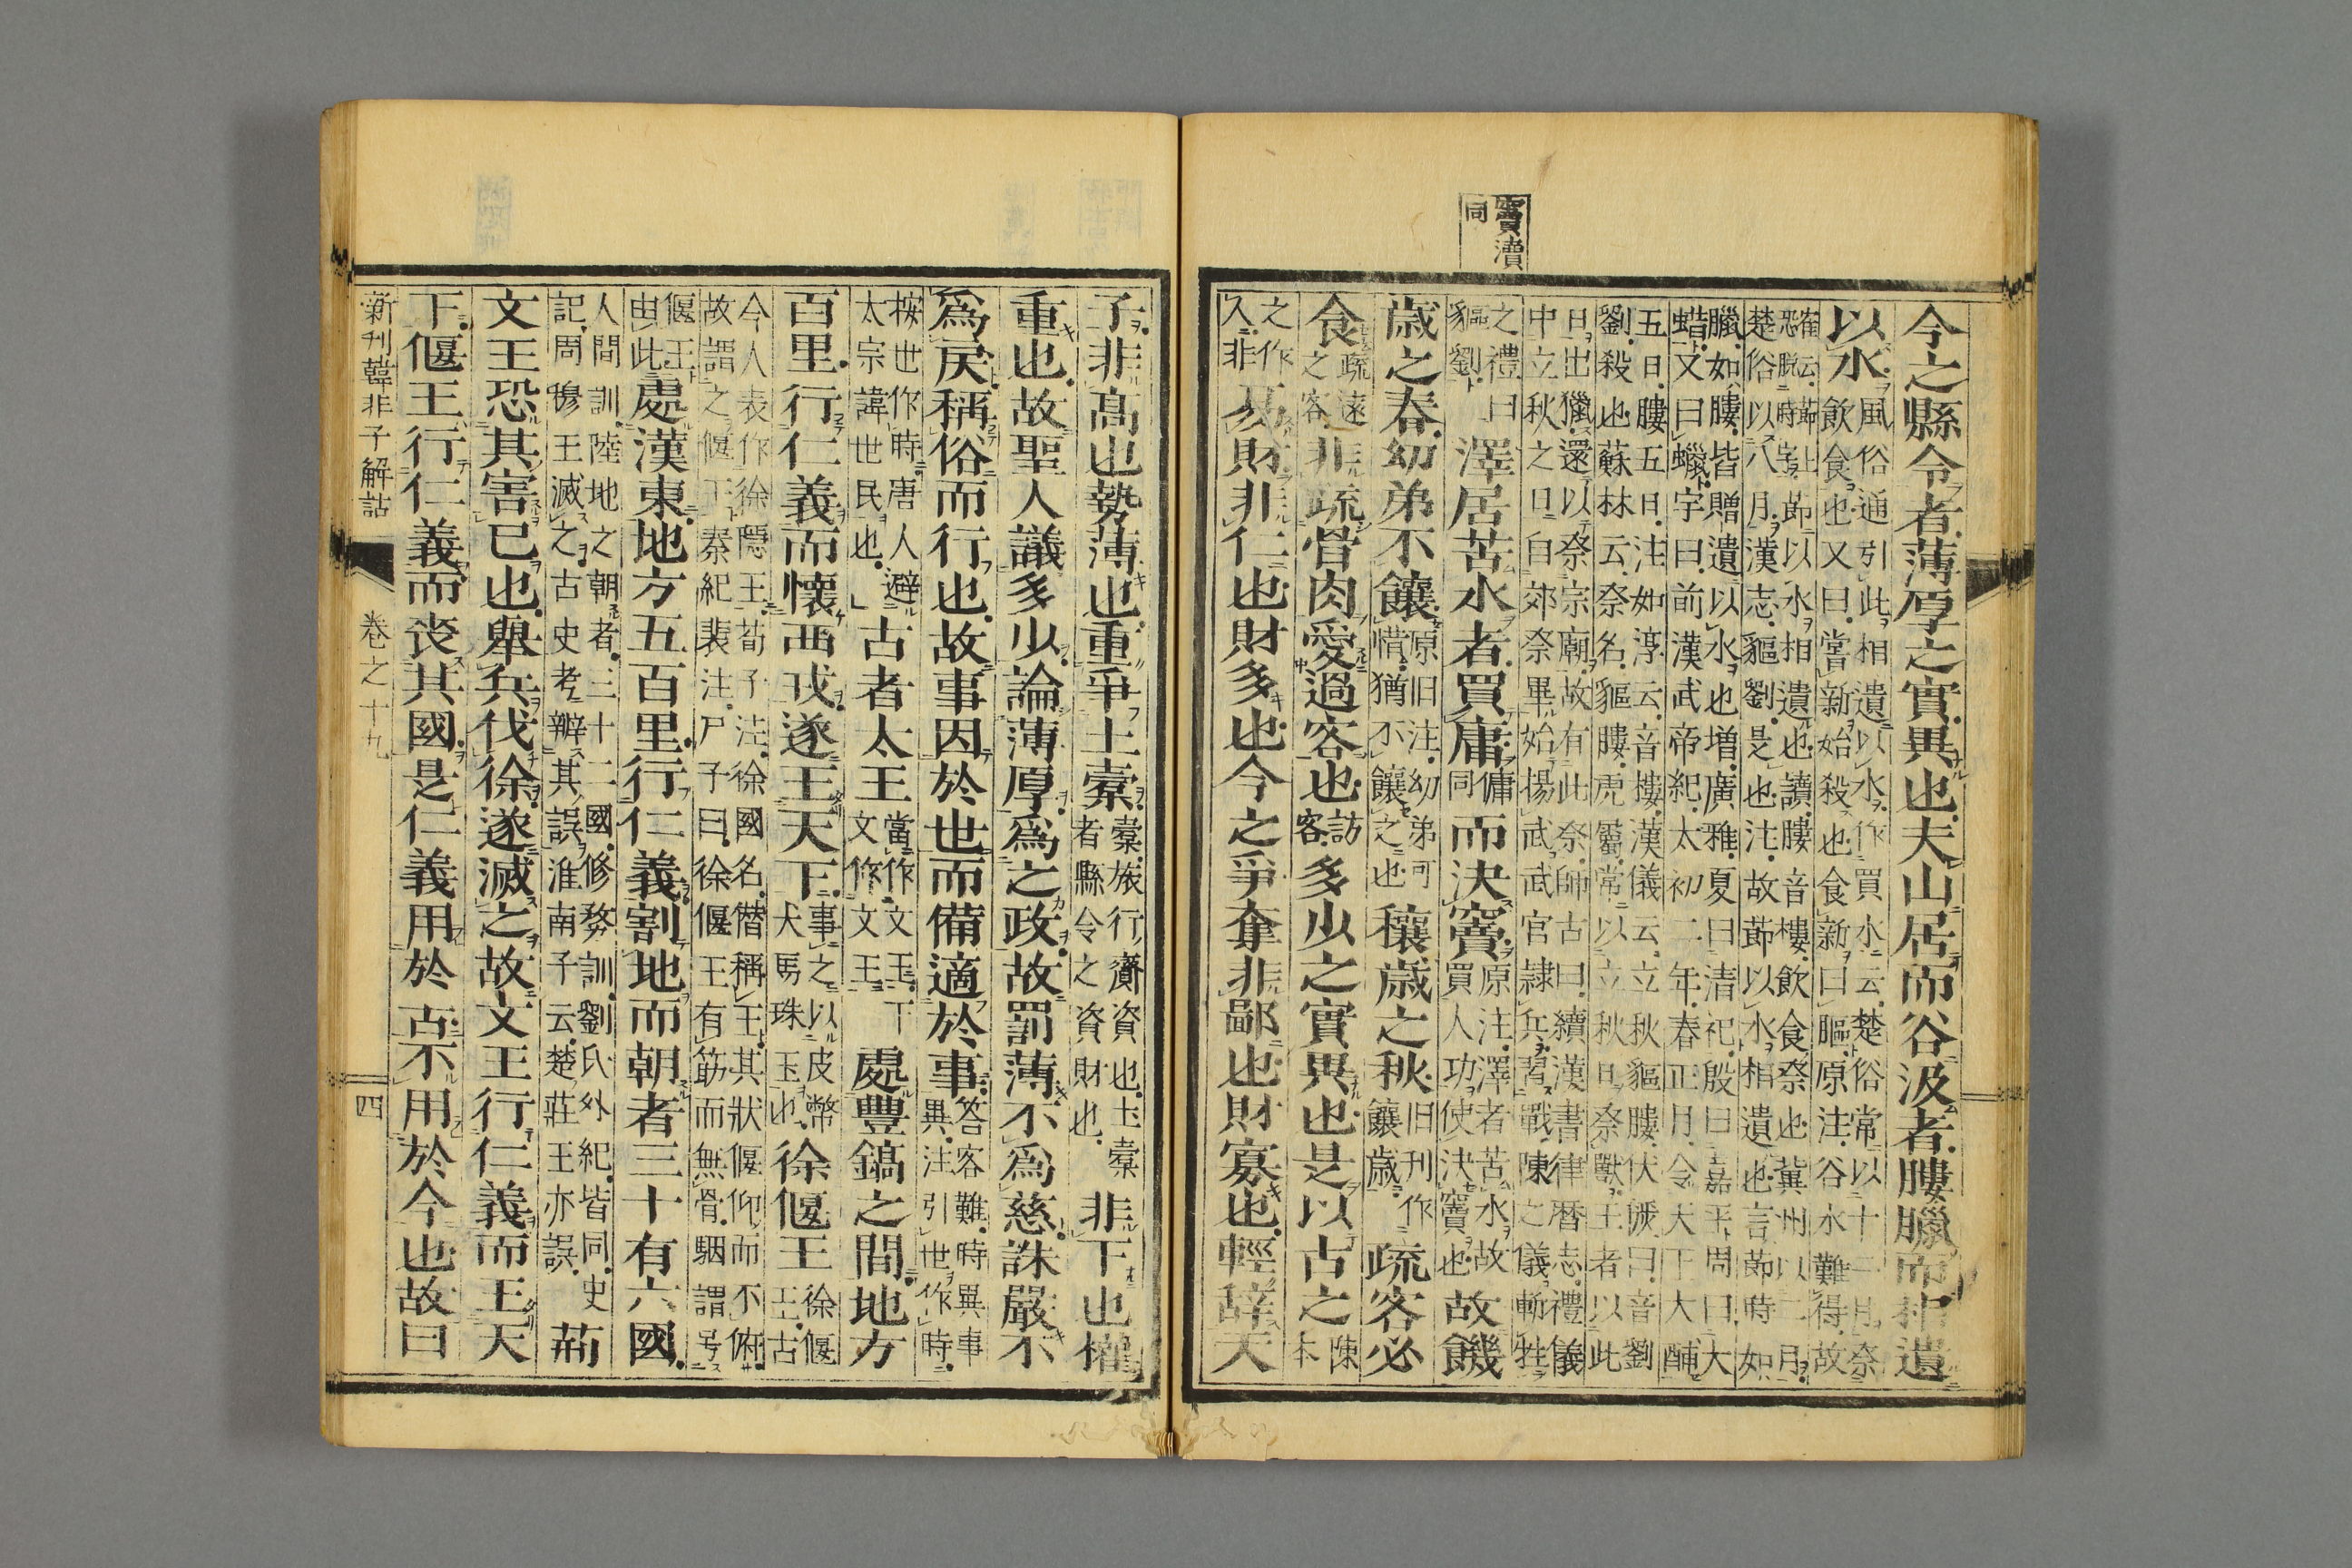 竇瀆
同
今之縣令者薄厚之實異也夫山居而谷汲者膢臘而相遺
以水風俗通引此相遺以水作買水云楚俗常以十二月祭
飲食也又曰嘗新始殺也食新曰膢原注谷水難得故
節以水相遺也讀膢音樓飲食祭也冀州以二月
楚俗以八月漢志貙劉是也注故節以水相遺也言節時如
臘如膢皆贈遺以水也増廣雅夏曰清祀殷曰嘉平周曰大
蜡文曰蠟字曰前漢武帝紀太初二年春正月令天下大酺
五日膢五日注如淳云音樓漢儀云立秋貙膢伏儼曰音劉
劉殺也蘇林云祭名貙膢虎屬常以立秋日祭獸王者以此
日出獵還以祭宗廟故有此祭師古曰續漢書律暦志禮儀
中立秋之日自郊祭畢始揚武武官隷兵習戰陳之儀斬牲
之禮曰
貙劉
澤居苦水者買庸傭同而決竇原注澤者苦水故
買人功使決竇也
故饑
歳之春幼弟不饟原旧注幼弟可
惜猶不饟之也
穰歳之秋旧刊作
饟歳
疏客必
食疏遠
之客
非疏骨肉愛過客也訪
客
多少之實異也是以古之陳
本
之作
人非
易財非仁也財多也今之爭奪非鄙也財寡也輕辭天
子非髙也勢薄也重爭土橐橐旅行齎資也土橐
者縣令之資財也
非下也權
重也故聖人議多少論薄厚爲之政故罰薄不爲慈誅嚴不
爲戾稱俗而行也故事因於世而備適於事答客難時異事
異注引世作時
按世作時唐人避
太宗諱世民也
古者太王當作文王下
文作文王
處豐鎬之間地方
百里行仁義而懷西戎遂王天下事之以皮幣
犬馬珠玉也
徐偃王徐偃
王古
今人表作徐隱王荀子注徐國名僭稱王其狀偃仰而不俯
故謂之偃王秦紀裴注尸子曰徐偃王有筋而無骨駰謂号
偃王
由此
處漢東地方五百里行仁義割地而朝者三十有六國
人間訓陸地之朝者三十二國修務訓劉氏外紀皆同史
記周穆王滅之古史考辯其誤淮南子云楚莊王亦誤
荊
文王恐其害已也舉兵伐徐遂滅之故文王行仁義而王天
下偃王行仁義而喪其國是仁義用於古不用於今也故曰
新刊韓非子解詁 卷之十九 四